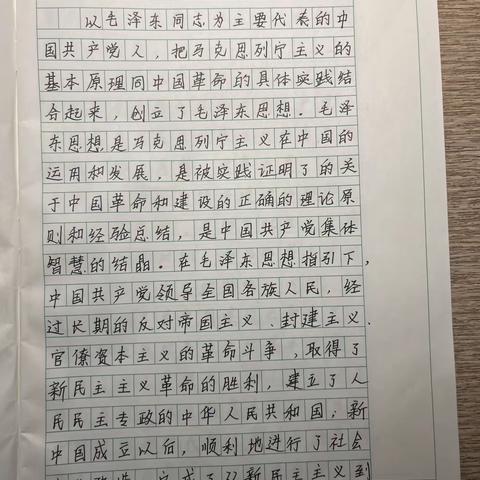 以毛泽东同志为主要代表的中
国共产党人，把马克思列宁主义的
基本原理同中国革命的具体实践结
合起来，创立了毛泽东思想。毛泽
东思想是马克思列宁主义在中国的
运用和发展，是被实践证明了的关
于中国革命和建设的正确的理论原
则和经验总结，是中国共产党集体
智慧的结晶。在毛泽东思想指引下，
中国共产党领导全国各族人民，经
过长期的反对帝国主义、封建主义、
官僚资本主义的革命斗争，取得了
新民主主义革命的胜利，建立了人
民民主专政的中华人民共和国；新
中国成立以后，顺利地进行了社会
完成了从新民主主义到